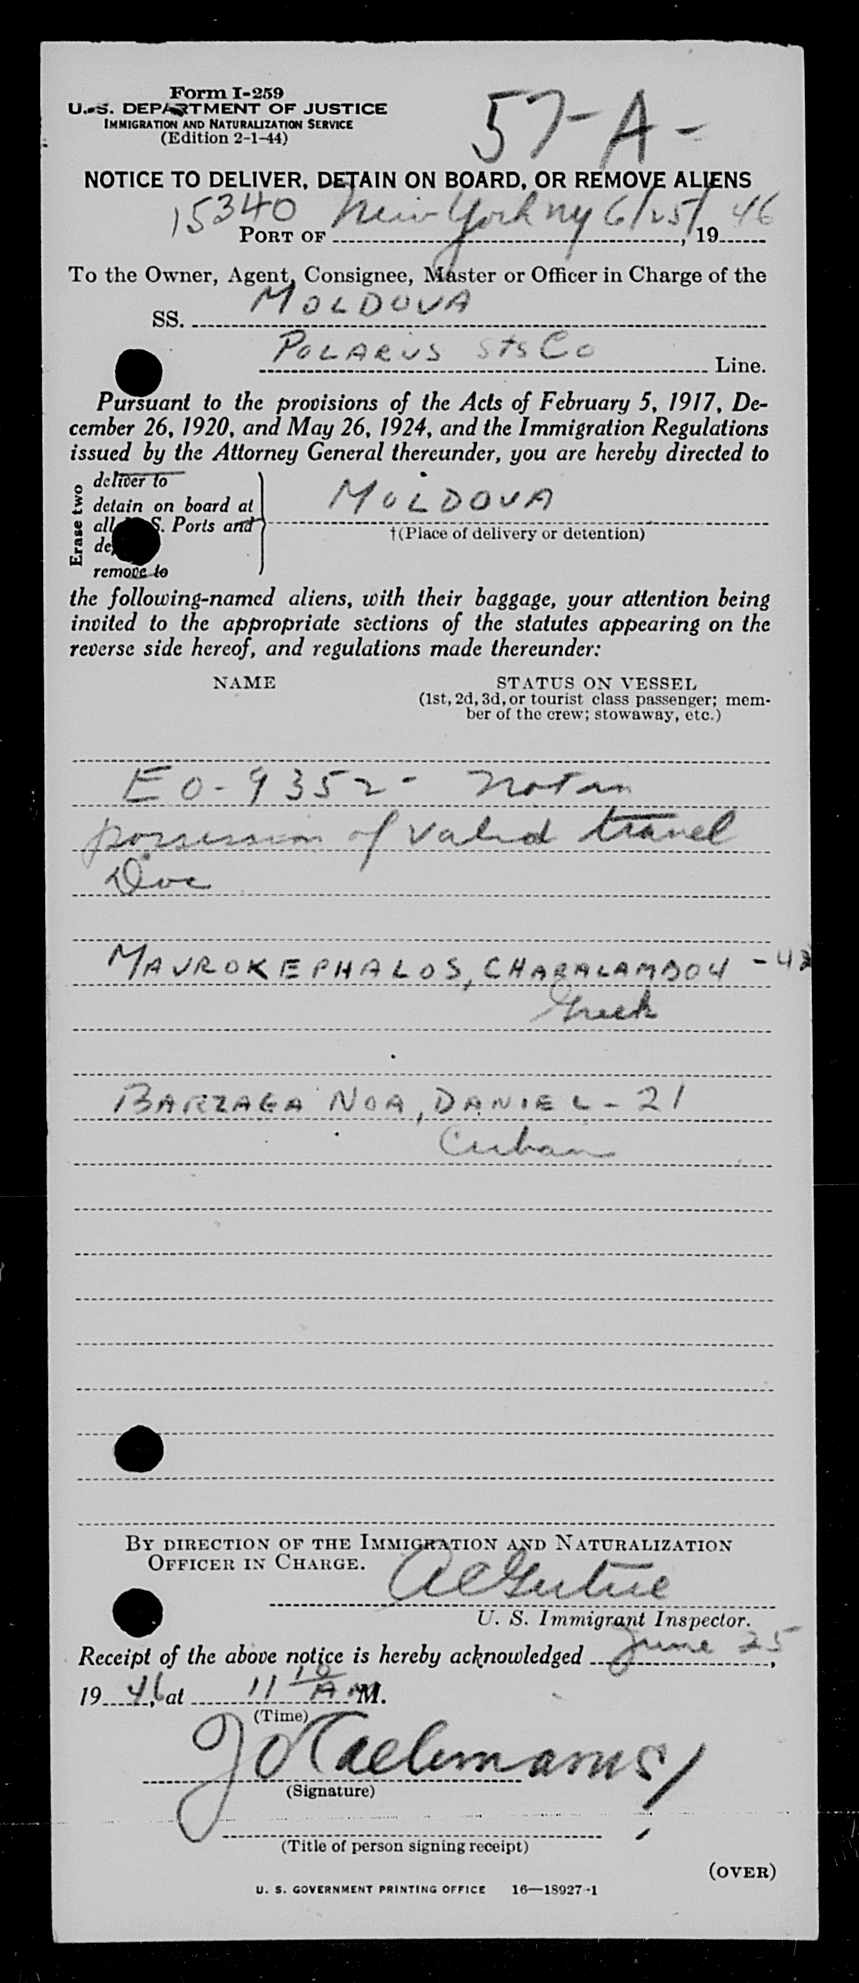 Form I-259
U. S. DEPARTMENT OF JUSTICE
IMMIGRATION AND NATURALIZATION SERVICE
(Edition 2-1-44)
57-A-
NOTICE TO DELIVER, DETAIN ON BOARD, OR REMOVE ALIENS
15340 New York NY 6/25/ 46
PORT OF , 19
To the Owner, Agent, Consignee, Master or Officer in Charge of the
SS. MOLDOVA
POLARUS Sts Co Line.
Pursuant to the provisions of the Acts of February 5, 1917, De-
cember 26, 1920, and May 26, 1924, and the Immigration Regulations
issued by the Attorney General thereunder, you are hereby directed to
Erase two
deliver to
detain on board at
all S. Ports and
remove to
MOLDOVA
†(Place of delivery or detention)
the following-named aliens, with their baggage, your attention being
invited to the appropriate sections of the statutes appearing on the
reverse side hereof, and regulations made thereunder:
NAME STATUS ON VESSEL
(1st, 2d, 3d, or tourist class passenger; mem-
ber of the crew; stowaway, etc.)
EO-9352- Not in
possession of valid travel
Doc
MAVROKEPHALOS, CHARALAMBOU - 43
Greek
BARZAGA NOA, DANIEL - 21
Cuban
BY DIRECTION OF THE IMMIGRATION AND NATURALIZATION
OFFICER IN CHARGE.
U. S. Immigrant Inspector.
Receipt of the above notice is hereby acknowledged June 25,
19 46, at 11 10 AM M.
(Time)
(Signature)
(Title of person signing receipt)
(OVER)
U. S. GOVERNMENT PRINTING OFFICE 16—18927-1